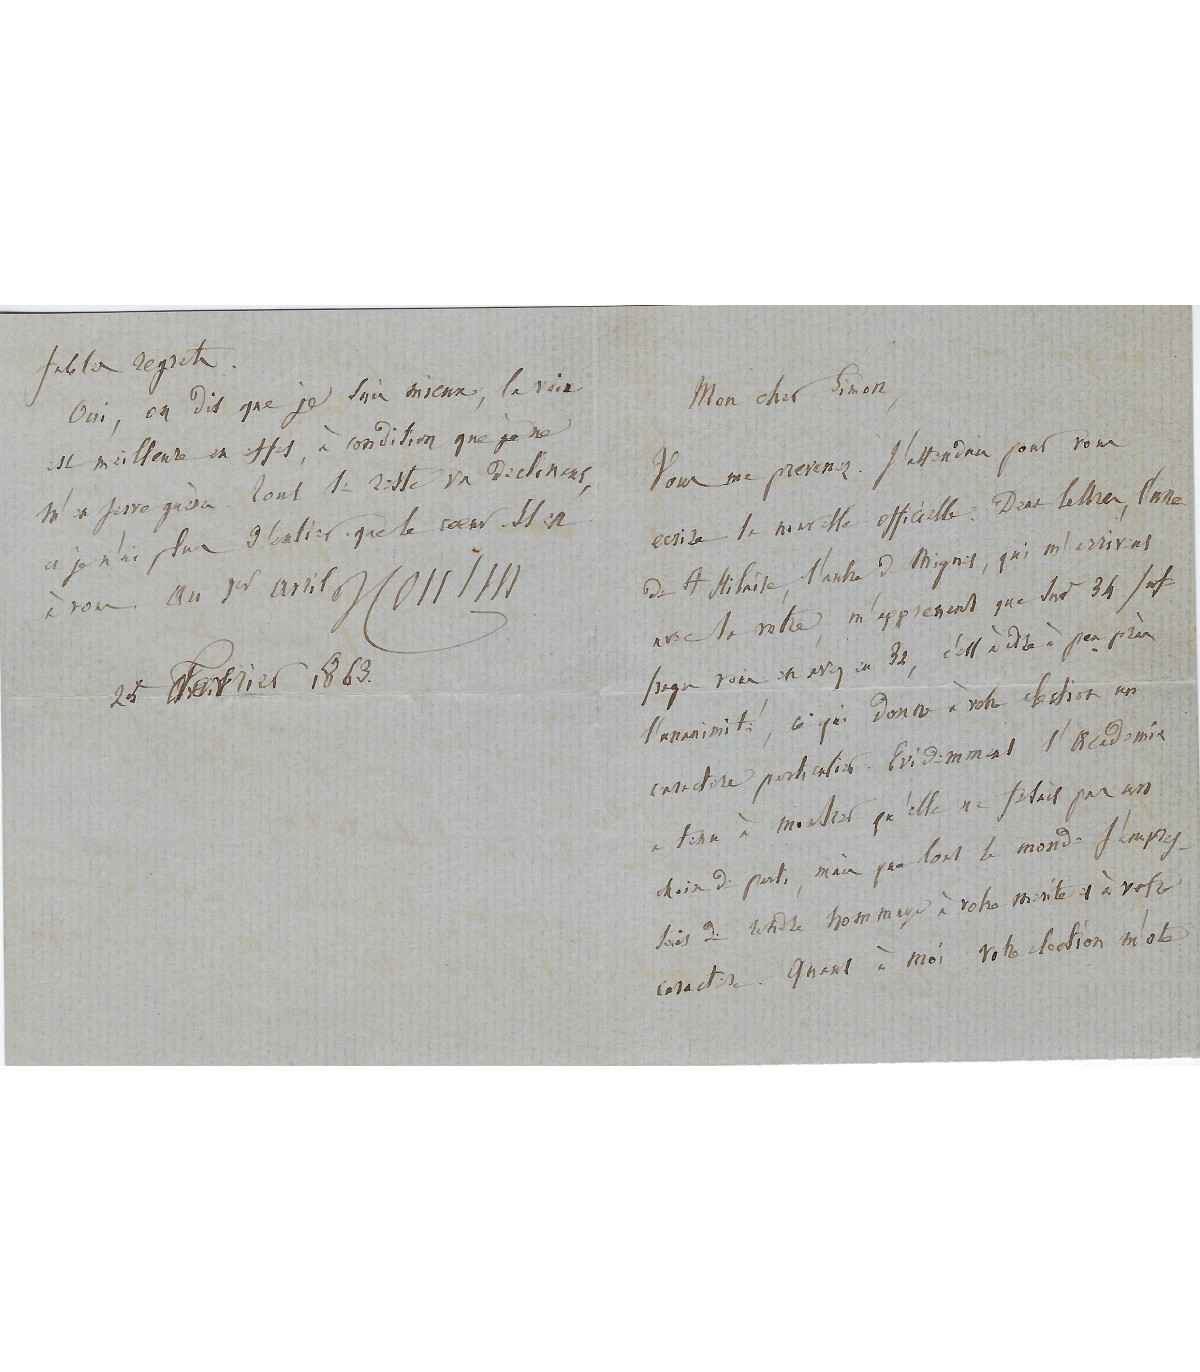 Mon cher Simon,
Vous me prevenez. J'attendais pour vous
ecrire la nouvelle officielle. Deux lettres, l'une
de St Hilaire, l'autre de Mignet, qui m'arrivent
avec la votre, m'apprennent que sur 34 suf
frages vous en avez eu 32, c'est à dire à peu près
l'unanimité, ce qui donne à votre election un
caractere particulier. Evidemment l'Academie
a tenu à montrer qu'elle ne fesait pas un
choix de parti, mais que tout le monde s'empres-
sait de rendre hommage à votre merite et à votre
caractere. Quant à moi votre election m'ote
regrets.
Oui, on dit que je suis mieux, la voix
est meilleure en effet, à condition que je ne
m'en serve guères. Tout le reste va declinant,
et je n'ai plus d'entier que le cœur. Il est
à vous. Au 1er avril
V. Cousin
25 Fevrier 1863.